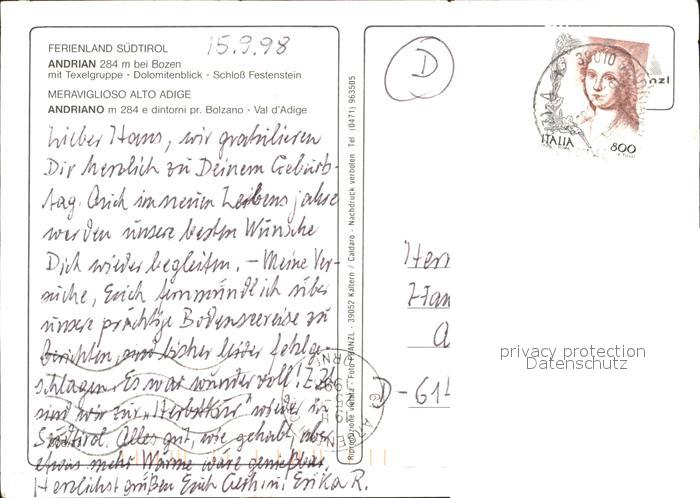 FERIENLAND SÜDTIROL
ANDRIAN 284 m bei Bozen
mit Texelgruppe - Dolomitenblick - Schloß Festenstein
MERAVIGLIOSO ALTO ADIGE
ANDRIANO m 284 e dintorni pr. Bolzano - Val d'Adige
15.9.98
Lieber Hans, wir gratulieren
Dir herzlich zu Deinem Geburts-
tag. Auch im neuen Lebensjahre
werden unsere besten Wünsche
Dich wieder begleiten. – Meine Ver-
suche, Euch fernmündlich über
unsere prächtige Bodenseereise zu
berichten, sind bisher leider fehlge-
schlagen. Es war wundervoll! Z.Zt.
sind wir zur „Herbstkur" wieder in
Südtirol. Alles gut, wie gehabt, aber
etwas mehr Wärme wäre genießbar.
Herzlichst grüßen Euch Erika R.
Riproduzione vietata - Foto FRANZL - 39052 Kaltern / Caldaro - Nachdruck verboten Tel (0471) 963505
D
nzl
39010
ITALIA 800
Herr
Han
D-614
privacy protection
Datenschutz